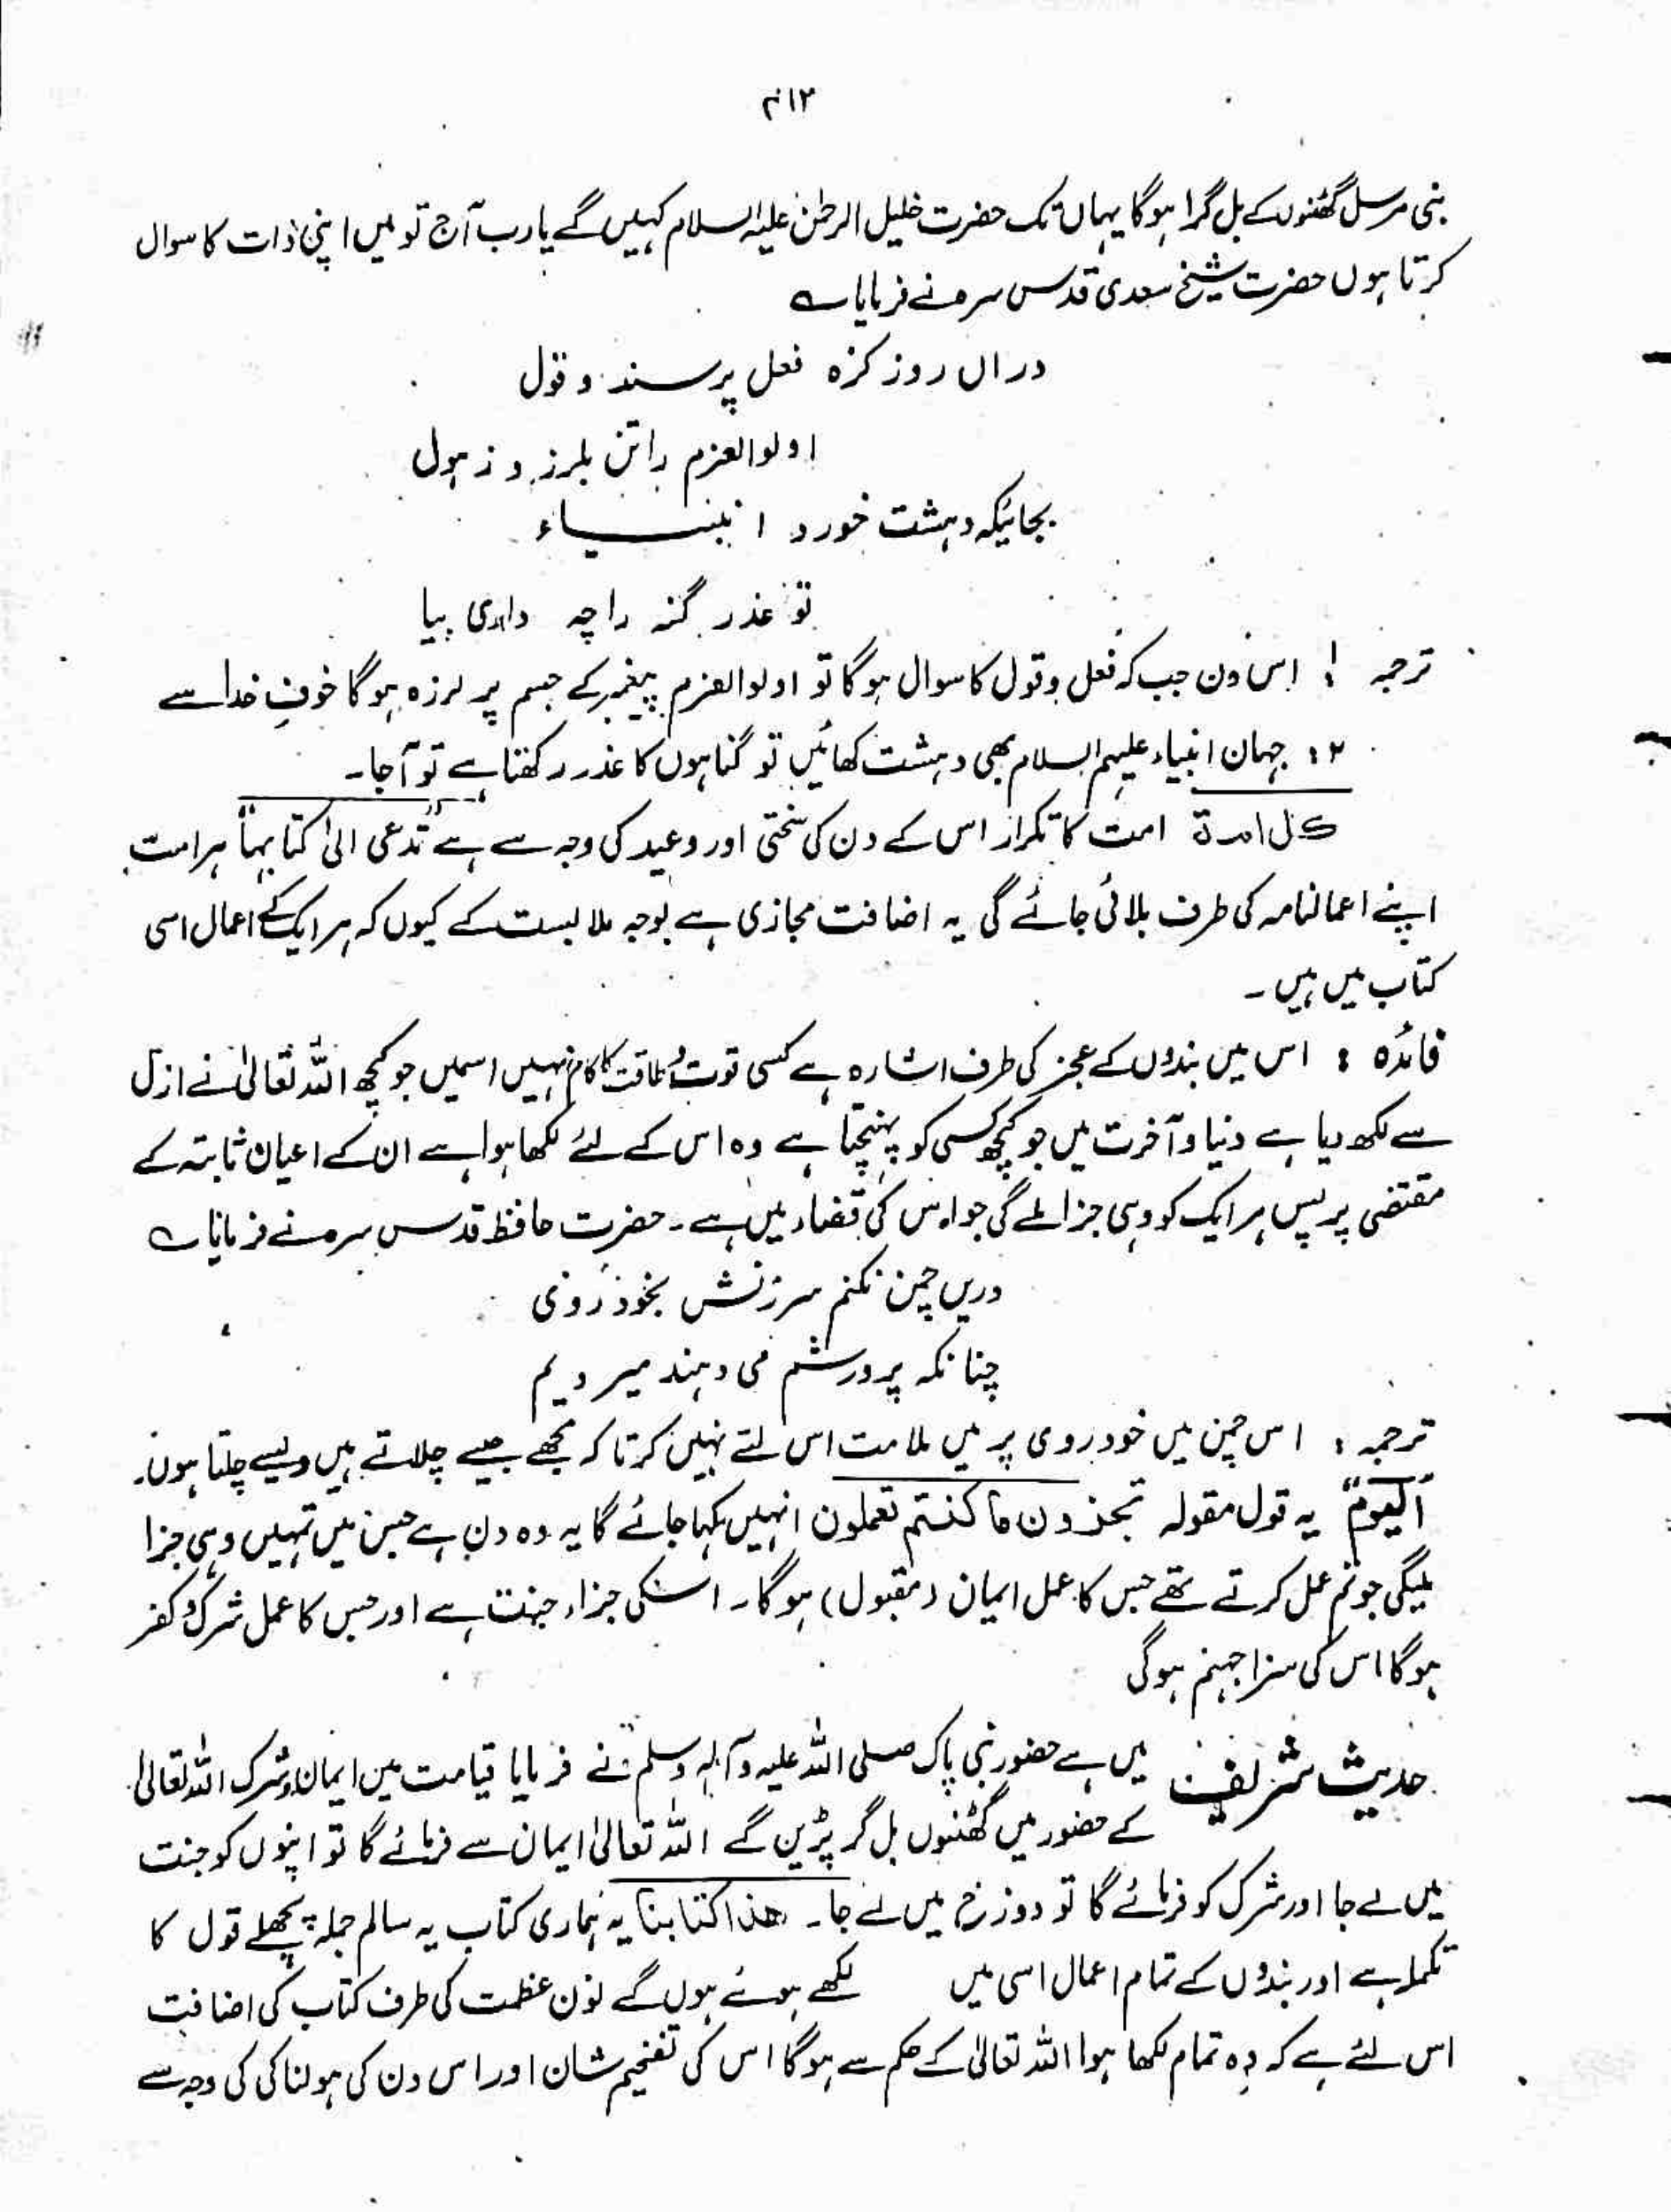 ۴۱۲
بنی مرسل گھٹنوں کے بل گرا ہوگا یہاں تک حضرت خلیل الرحمٰن علیہ السلام کہیں گے یا رب آج تو میں اپنی ذات کا سوال
کرتا ہوں حضرت شیخ سعدی قدس سرہ نے فرمایا ؎
دراں روز کزہ فعل پرسند و قول
اولوالعزم را تن بلرزد ز ہول
بجائیکہ دہشت خورد انبیاء
تو عذر گنہ را چہ داری بیا
ترجمہ ! اس دن جب کہ فعل و قول کا سوال ہوگا تو اولوالعزم پیغمبر کے جسم پر لرزہ ہوگا خوفِ خدا سے
۲: جہان انبیاء علیہم السلام بھی دہشت کھائیں تو گناہوں کا عذر رکھتا ہے تو آجا۔
کل امۃ امت کا تکرار اس کے دن کی سختی اور وعید کی وجہ سے ہے "تدعی الیٰ کتابہا" ہر امت
اپنے اعمالنامہ کی طرف بلائی جائے گی یہ اضافت مجازی ہے بوجہ ملابست کے کیوں کہ ہر ایک کے اعمال اسی
کتاب میں ہیں ۔
فائدہ : اس میں بندوں کے عجز کی طرف اشارہ ہے کسی قوت و طاقت کا کام نہیں اسمیں جو کچھ اللہ تعالیٰ نے ازل
سے لکھ دیا ہے دنیا و آخرت میں جو کچھ کسی کو پہنچتا ہے وہ اس کے لئے لکھا ہوا ہے ان کے اعیان ثابتہ کے
مقتضی پر پس ہر ایک کو وہی جزا ملے گی جو اس کی قضاء میں ہے ۔ حضرت حافظ قدس سرہ نے فرمایا ؎
دریں چمن نکنم سرزنش بخود روئی
چنانکہ پرورشم می دہند میرویم
ترجمہ : اس چمن میں خود روی پر میں ملامت اس لئے نہیں کرتا کہ مجھے جیسے چلاتے ہیں ویسے چلتا ہوں۔
"الیوم" یہ قول مقولہ تجزون ما کنتم تعملون انہیں کہا جائے گا یہ وہ دن ہے جس میں تمہیں وہی جزا
ملیگی جو تم عمل کرتے تھے جس کا عمل ایمان (مقبول) ہوگا ۔ اسکی جزاء جنت ہے اور جس کا عمل شرک و کفر
ہوگا اس کی سزا جہنم ہوگی
حدیث شریف میں ہے حضور نبی پاک صلی اللہ علیہ وآلہ وسلم نے فرمایا قیامت میں ایمان و شرک اللہ تعالیٰ
کے حضور میں گھٹنوں بل گر پڑیں گے اللہ تعالیٰ ایمان سے فرمائے گا تو اپنوں کو جنت
میں لے جا اور شرک کو فرمائے گا تو دوزخ میں لے جا ۔ ھذا کتابنا یہ ہماری کتاب یہ سالم جملہ پچھلے قول کا
تکملہ ہے اور بندوں کے تمام اعمال اسی میں لکھے ہوئے ہوں گے نون عظمت کی طرف کتاب کی اضافت
اس لئے ہے کہ وہ تمام لکھا ہوا اللہ تعالیٰ کے حکم سے ہوگا اس کی تفخیم شان اور اس دن کی ہولناکی کی وجہ سے